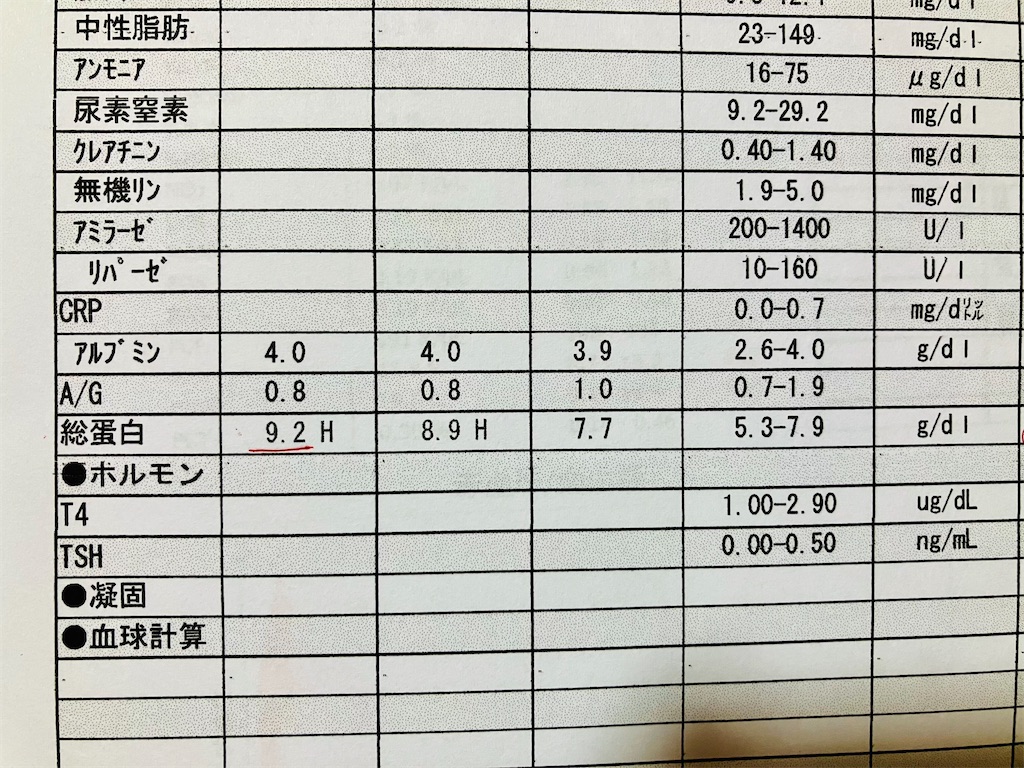 中性脂肪 23-149 mg/dl
アンモニア 16-75 μg/dl
尿素窒素 9.2-29.2 mg/dl
クレアチニン 0.40-1.40 mg/dl
無機リン 1.9-5.0 mg/dl
アミラーゼ 200-1400 U/l
リパーゼ 10-160 U/l
CRP 0.0-0.7 mg/d㍑
アルブミン 4.0 4.0 3.9 2.6-4.0 g/dl
A/G 0.8 0.8 1.0 0.7-1.9
総蛋白 9.2 H 8.9 H 7.7 5.3-7.9 g/dl
●ホルモン
T4 1.00-2.90 ug/dL
TSH 0.00-0.50 ng/mL
●凝固
●血球計算